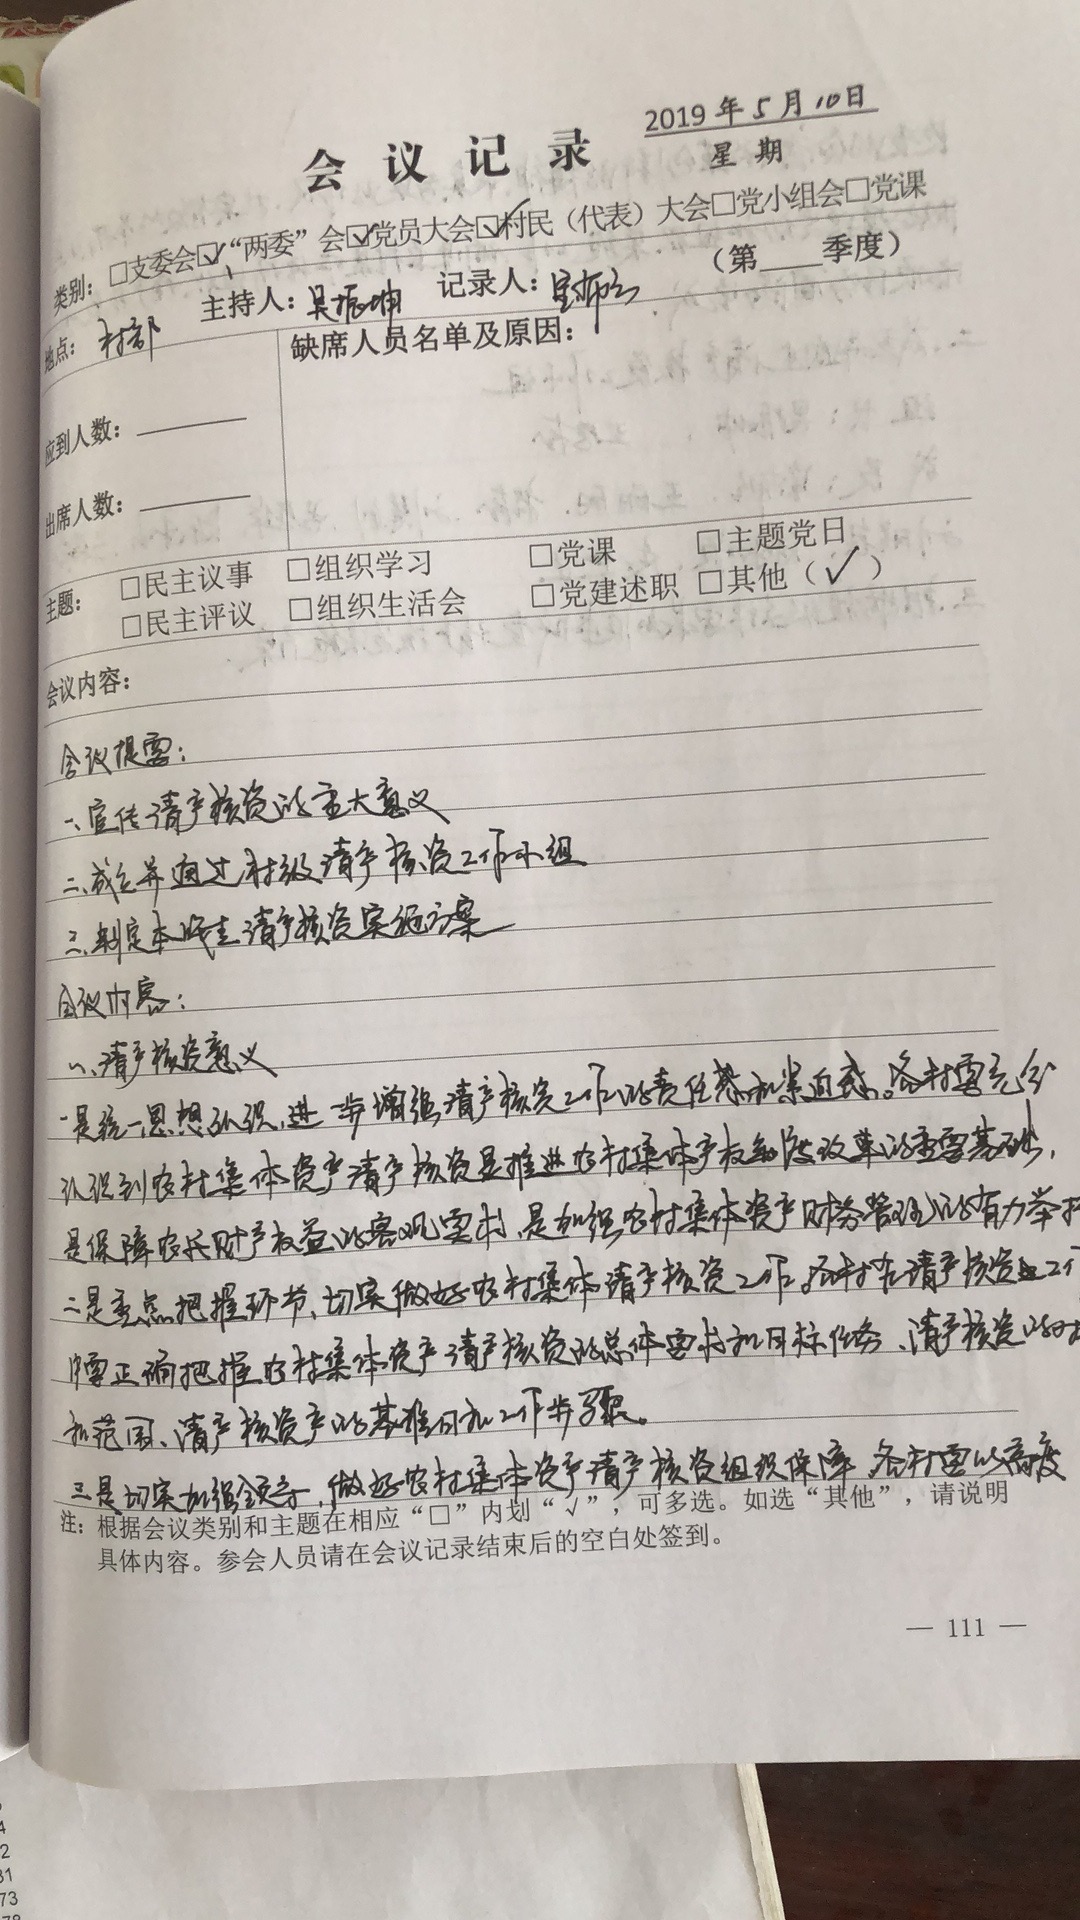 2019 年 5 月 10日
会 议 记 录
星 期
类别：□支委会☑“两委”会☑党员大会☑村民（代表）大会□党小组会□党课
主持人：吴振坤 记录人： （第 季度）
地点：村部
缺席人员名单及原因：
应到人数：
出席人数：
主题：
□民主议事 □组织学习 □党课 □主题党日
□民主评议 □组织生活会 □党建述职 □其他（√）
会议内容：
会议提要：
一、宣传清产核资的重大意义
二、成立并通过村级清产核资工作小组
三、制定本 清产核资实施方案
会议内容：
一、清产核资意义
一是统一思想认识，进一步增强清产核资工作的责任感和紧迫感。各村要充分
认识到农村集体资产清产核资是推进农村集体产权制度改革的重要基础，
是保障农民财产权益的客观要求，是加强农村集体资产财务管理的有力举措
二是重点把握环节、切实做好农村集体清产核资工作。各村在清产核资工作
中要正确把握农村集体资产清产核资的总体要求和目标任务、清产核资的
和范围、清产核资产的基准日和工作步骤。
三是切实加强领导，做好农村集体资产清产核资组织保障，各村要以高度
注：根据会议类别和主题在相应“□”内划“√”，可多选。如选“其他”，请说明
具体内容。参会人员请在会议记录结束后的空白处签到。
— 111 —